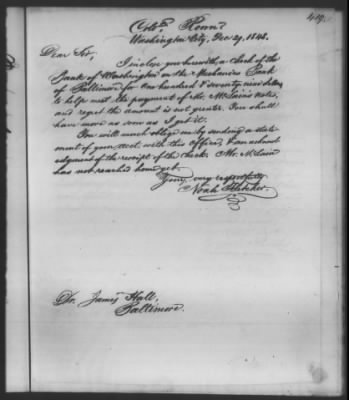 419.
Col. Room
Washington City, Dec 29, 1848.
Dear Sir,
I inclose you herewith a check of the
Bank of Washington on the Mechanics Bank
of Baltimore for One hundred & seventy nine dollars
to help meet the payment of Mr. McLain's note,
and regret the amount is not greater. You shall
have more as soon as I get it.
You will much oblige me by sending a state-
ment of your acct. with this Office, & an acknowl
edgment of the receipt of the check. Mr. McLain
has not reached home yet.
Yours, very respectfully
Noah Fletcher.
Dr. James Hall,
Baltimore.